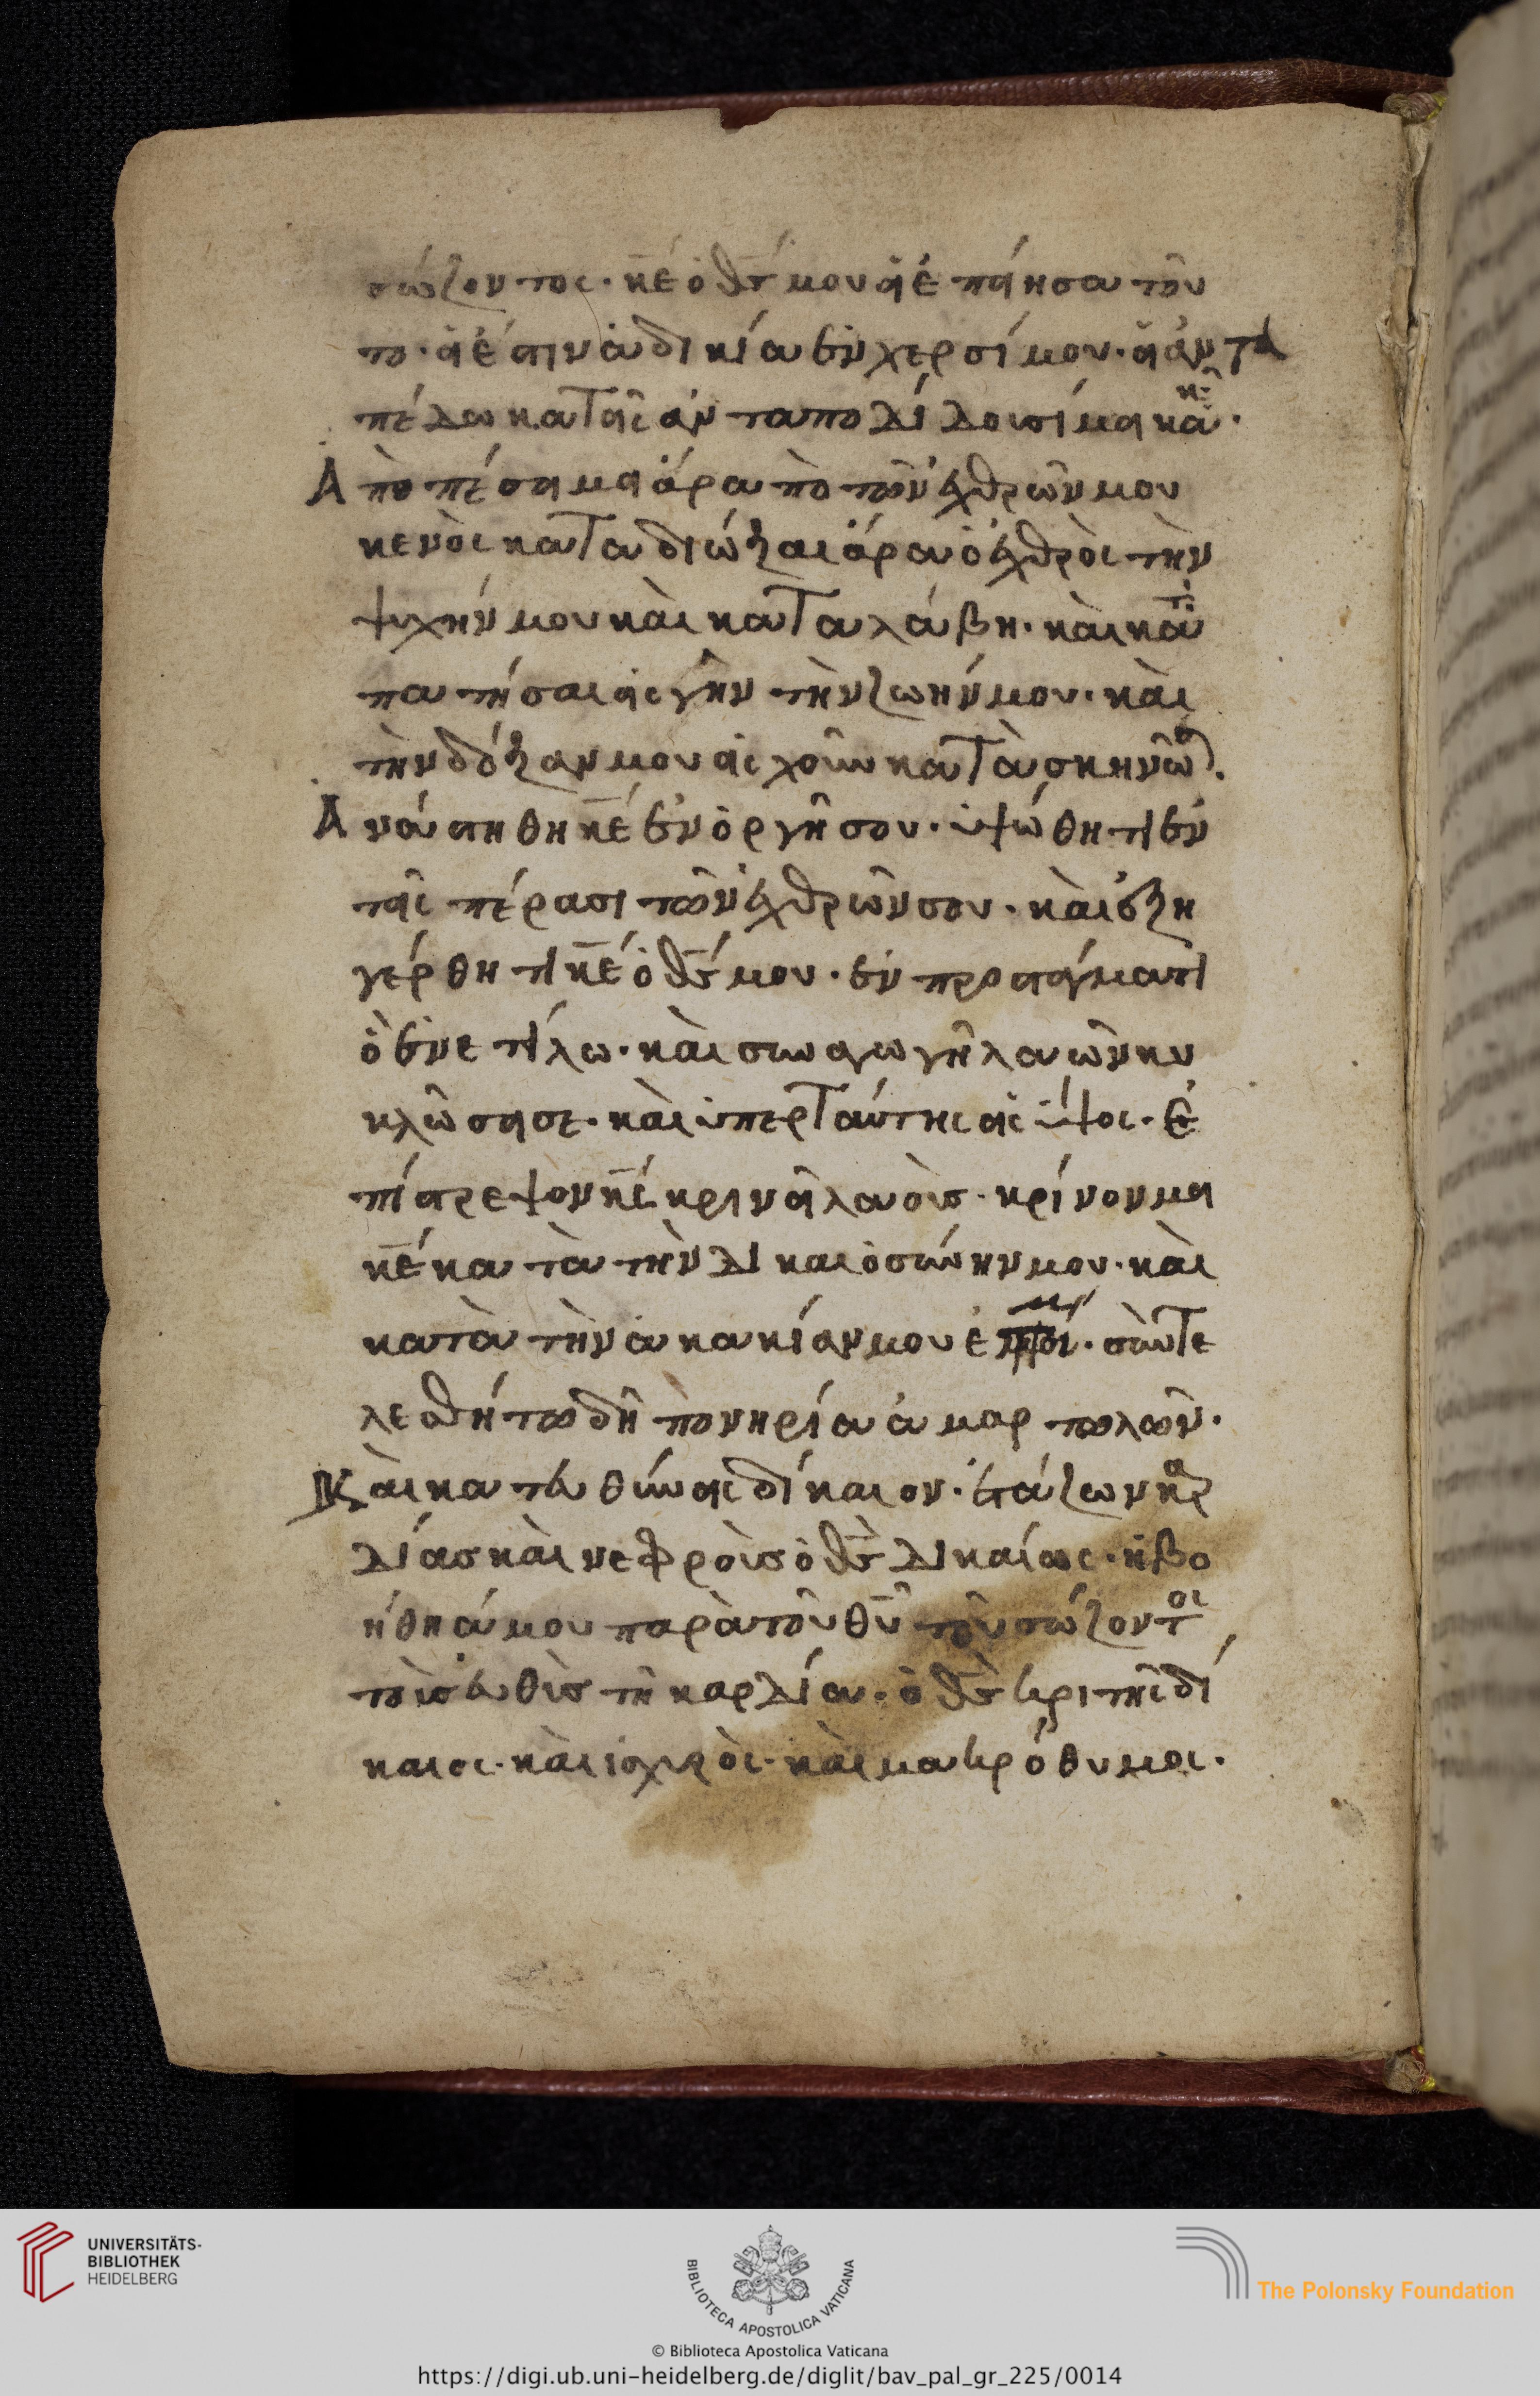 σώζοντος· κ̅ε̅ ὁ θ̅ς̅ μου εἰ ἐποίησα τοῦ
το· εἰ ἔστιν ἀδικία ἐν χερσί μου· εἰ ἀντα
πέδωκα τοῖς ἀνταποδιδουσί μοι κακ·
Ἀποπέσοιμι ἄρα ἀπὸ τῶν ἐχθρῶν μου
κενὸς καταδιώξαι ἄρα ὁ ἐχθρὸς τὴν
ψυχήν μου καὶ καταλάβη· καὶ κατα
πατήσαι εἰς γῆν τὴν ζωήν μου· καὶ
τὴν δόξαν μου εἰς χοῦν κατασκηνῶσ·
Ἀνάστηθι κ̅ε̅ ἐν ὀργῆ σου· ὑψώθητι ἐν
τοῖς πέρασι τῶν ἐχθρῶν σου· καὶ ἐξη
γέρθητι κ̅ε̅ ὁ θ̅ς̅ μου· ἐν προστάγματι
ὃ ἐνετίλω· καὶ συναγωγῆ λαῶν κυ
κλώσει σε· καὶ ὑπὲρ ταύτης εἰς ὕψος· ἐ
πίστρεψον κ̅ς̅ κρινεῖ λαούς· κρίνον μοι
κ̅ε̅ κατὰ τὴν δικαιοσύνην μου· καὶ
κατὰ τὴν ἀκακίαν μου ἐπ ἐμοί· συντε
λεσθήτω δὴ πονηρία ἁμαρτωλῶν·
Καὶ κατευθύνεις δίκαιον· ἐτάζων καρ
δίας καὶ νεφροὺς ὁ θ̅ς̅ δικαίως· ἡ βο
ήθειά μου παρὰ τοῦ θ̅υ̅ τοῦ σώζοντος
τοὺς εὐθεῖς τῆ καρδία· ὁ θ̅ς̅ κριτὴς δί
καιος· καὶ ἰσχυρὸς· καὶ μακρόθυμος·
UNIVERSITÄTS-
BIBLIOTHEK
HEIDELBERG
BIBLIOTECA APOSTOLICA VATICANA
The Polonsky Foundation
© Biblioteca Apostolica Vaticana
https://digi.ub.uni-heidelberg.de/diglit/bav_pal_gr_225/0014